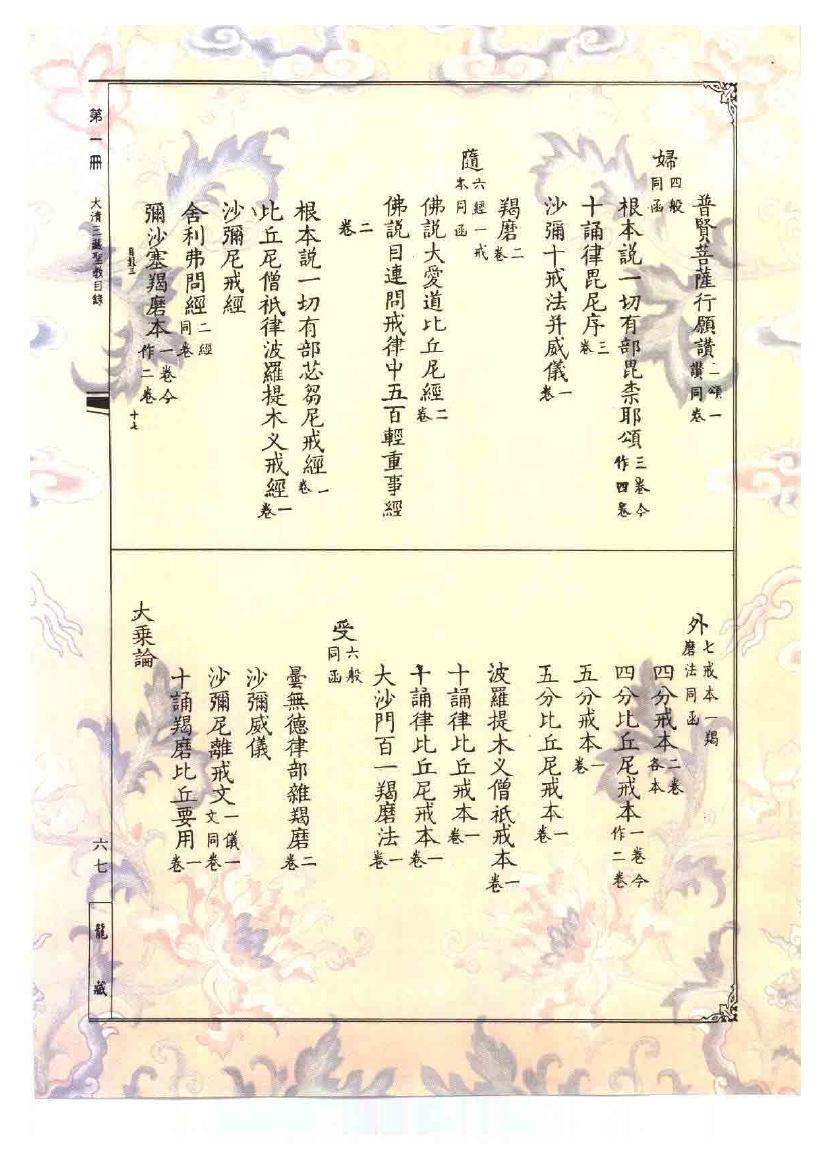 普賢菩薩行願讚二頌一讚同卷
婦四般同函
根本說一切有部毘柰耶頌三卷今作四卷
十誦律毘尼序三卷
沙彌十戒法并威儀一卷
羯磨二卷
隨六經一戒本同函
佛說大愛道比丘尼經二卷
佛說目連問戒律中五百輕重事經
二卷
根本說一切有部苾芻尼戒經一卷
比丘尼僧祇律波羅提木义戒經一卷
沙彌尼戒經
舍利弗問經二經同卷
彌沙塞羯磨本一卷今作二卷
十七
外七戒本一羯磨法同函
四分戒本二卷各本
四分比丘尼戒本一卷今作二卷
五分戒本一卷
五分比丘尼戒本一卷
波羅提木义僧祇戒本一卷
十誦律比丘戒本一卷
十誦律比丘尼戒本一卷
大沙門百一羯磨法一卷
受六般同函
曇無德律部雜羯磨二卷
沙彌威儀
沙彌尼離戒文一儀一文同卷
十誦羯磨比丘要用一卷
大乘論
第一冊
大清三藏聖教目錄
六七
龍藏